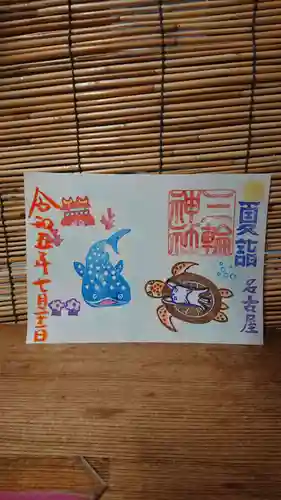 夏詣
名古屋
三輪
神社
令和五年七月日